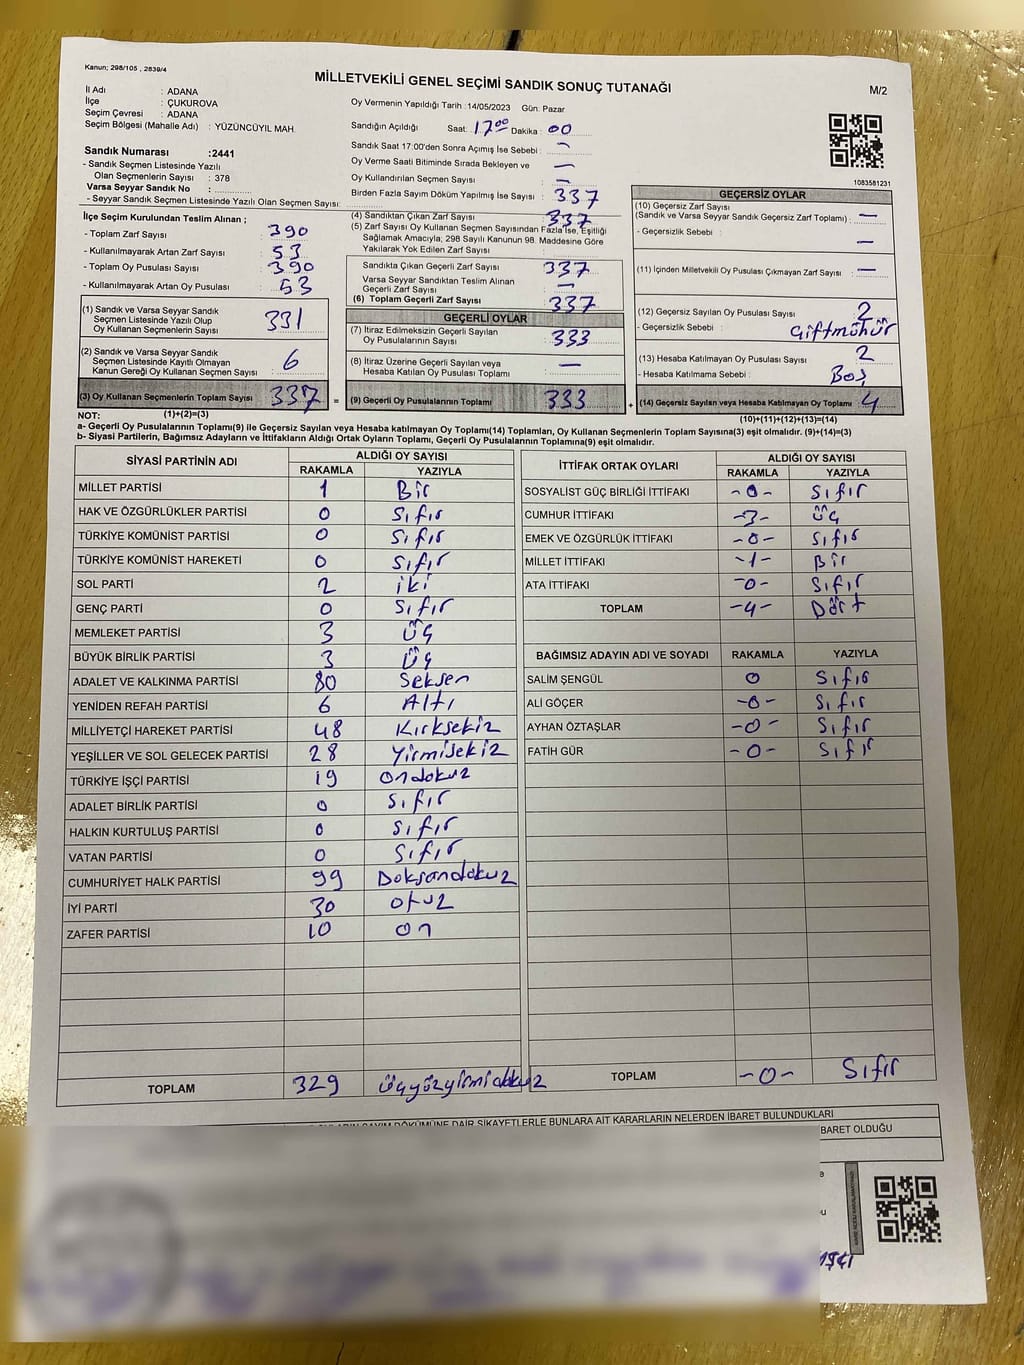 Kanun; 298/105 , 2839/4
MİLLETVEKİLİ GENEL SEÇİMİ SANDIK SONUÇ TUTANAĞI
M/2
İl Adı : ADANA
İlçe : ÇUKUROVA
Seçim Çevresi : ADANA
Seçim Bölgesi (Mahalle Adı) : YÜZÜNCÜYIL MAH.
Sandık Numarası :2441
- Sandık Seçmen Listesinde Yazılı
Olan Seçmenlerin Sayısı : 378
Varsa Seyyar Sandık No :
- Seyyar Sandık Seçmen Listesinde Yazılı Olan Seçmen Sayısı:
Oy Vermenin Yapıldığı Tarih : 14/05/2023 Gün: Pazar
Sandığın Açıldığı Saat: 17:00 Dakika : 00
Sandık Saat 17:00'den Sonra Açımış İse Sebebi : -
Oy Verme Saati Bitiminde Sırada Bekleyen ve -
Oy Kullandırılan Seçmen Sayısı : -
Birden Fazla Sayım Döküm Yapılmış İse Sayısı : 337
1083581231
İlçe Seçim Kurulundan Teslim Alınan ;
- Toplam Zarf Sayısı : 390
- Kullanılmayarak Artan Zarf Sayısı : 53
- Toplam Oy Pusulası Sayısı : 390
- Kullanılmayarak Artan Oy Pusulası : 53
(1) Sandık ve Varsa Seyyar Sandık
Seçmen Listesinde Yazılı Olup
Oy Kullanan Seçmenlerin Sayısı : 331
(2) Sandık ve Varsa Seyyar Sandık
Seçmen Listesinde Kayıtlı Olmayan
Kanun Gereği Oy Kullanan Seçmen Sayısı : 6
(3) Oy Kullanan Seçmenlerin Toplam Sayısı : 337 =
(1)+(2)=(3)
(4) Sandıktan Çıkan Zarf Sayısı : 337
(5) Zarf Sayısı Oy Kullanan Seçmen Sayısından Fazla İse, Eşitliği
Sağlamak Amacıyla; 298 Sayılı Kanunun 98. Maddesine Göre
Yakılarak Yok Edilen Zarf Sayısı :
Sandıkta Çıkan Geçerli Zarf Sayısı : 337
Varsa Seyyar Sandıktan Teslim Alınan
Geçerli Zarf Sayısı : -
(6) Toplam Geçerli Zarf Sayısı : 337
GEÇERLİ OYLAR
(7) İtiraz Edilmeksizin Geçerli Sayılan
Oy Pusulalarının Sayısı : 333
(8) İtiraz Üzerine Geçerli Sayılan veya
Hesaba Katılan Oy Pusulası Toplamı : -
(9) Geçerli Oy Pusulalarının Toplamı : 333 +
GEÇERSİZ OYLAR
(10) Geçersiz Zarf Sayısı
(Sandık ve Varsa Seyyar Sandık Geçersiz Zarf Toplamı) : -
- Geçersizlik Sebebi : -
(11) İçinden Milletvekili Oy Pusulası Çıkmayan Zarf Sayısı : -
(12) Geçersiz Sayılan Oy Pusulası Sayısı : 2
- Geçersizlik Sebebi : Çiftmühür
(13) Hesaba Katılmayan Oy Pusulası Sayısı : 2
- Hesaba Katılmama Sebebi : Boş
(14) Geçersiz Sayılan veya Hesaba Katılmayan Oy Toplamı : 4
(10)+(11)+(12)+(13)=(14)
NOT:
a- Geçerli Oy Pusulalarının Toplamı(9) ile Geçersiz Sayılan veya Hesaba katılmayan Oy Toplamı(14) Toplamları, Oy Kullanan Seçmenlerin Toplam Sayısına(3) eşit olmalıdır. (9)+(14)=(3)
b- Siyasi Partilerin, Bağımsız Adayların ve İttifakların Aldığı Ortak Oyların Toplamı, Geçerli Oy Pusulalarının Toplamına(9) eşit olmalıdır.
SİYASİ PARTİNİN ADI ALDIĞI OY SAYISI
RAKAMLA YAZIYLA
MİLLET PARTİSİ 1 Bir
HAK VE ÖZGÜRLÜKLER PARTİSİ 0 Sıfır
TÜRKİYE KOMÜNİST PARTİSİ 0 Sıfır
TÜRKİYE KOMÜNİST HAREKETİ 0 Sıfır
SOL PARTİ 2 iki
GENÇ PARTİ 0 Sıfır
MEMLEKET PARTİSİ 3 Üç
BÜYÜK BİRLİK PARTİSİ 3 Üç
ADALET VE KALKINMA PARTİSİ 80 Seksen
YENİDEN REFAH PARTİSİ 6 Altı
MİLLİYETÇİ HAREKET PARTİSİ 48 Kırksekiz
YEŞİLLER VE SOL GELECEK PARTİSİ 28 Yirmisekiz
TÜRKİYE İŞÇİ PARTİSİ 19 Ondokuz
ADALET BİRLİK PARTİSİ 0 Sıfır
HALKIN KURTULUŞ PARTİSİ 0 Sıfır
VATAN PARTİSİ 0 Sıfır
CUMHURİYET HALK PARTİSİ 99 Doksandokuz
İYİ PARTİ 30 Otuz
ZAFER PARTİSİ 10 On
TOPLAM 329 Üçyüzyirmidokuz
İTTİFAK ORTAK OYLARI ALDIĞI OY SAYISI
RAKAMLA YAZIYLA
SOSYALİST GÜÇ BİRLİĞİ İTTİFAKI -0- Sıfır
CUMHUR İTTİFAKI -3- Üç
EMEK VE ÖZGÜRLÜK İTTİFAKI -0- Sıfır
MİLLET İTTİFAKI -1- Bir
ATA İTTİFAKI -0- Sıfır
TOPLAM -4- Dört
BAĞIMSIZ ADAYIN ADI VE SOYADI RAKAMLA YAZIYLA
SALİM ŞENGÜL 0 Sıfır
ALİ GÖÇER -0- Sıfır
AYHAN ÖZTAŞLAR -0- Sıfır
FATİH GÜR -0- Sıfır
TOPLAM -0- Sıfır
SAYIM DÖKÜMÜNE DAİR ŞİKAYETLERLE BUNLARA AİT KARARLARIN NELERDEN İBARET BULUNDUKLARI
BARET OLDUĞU